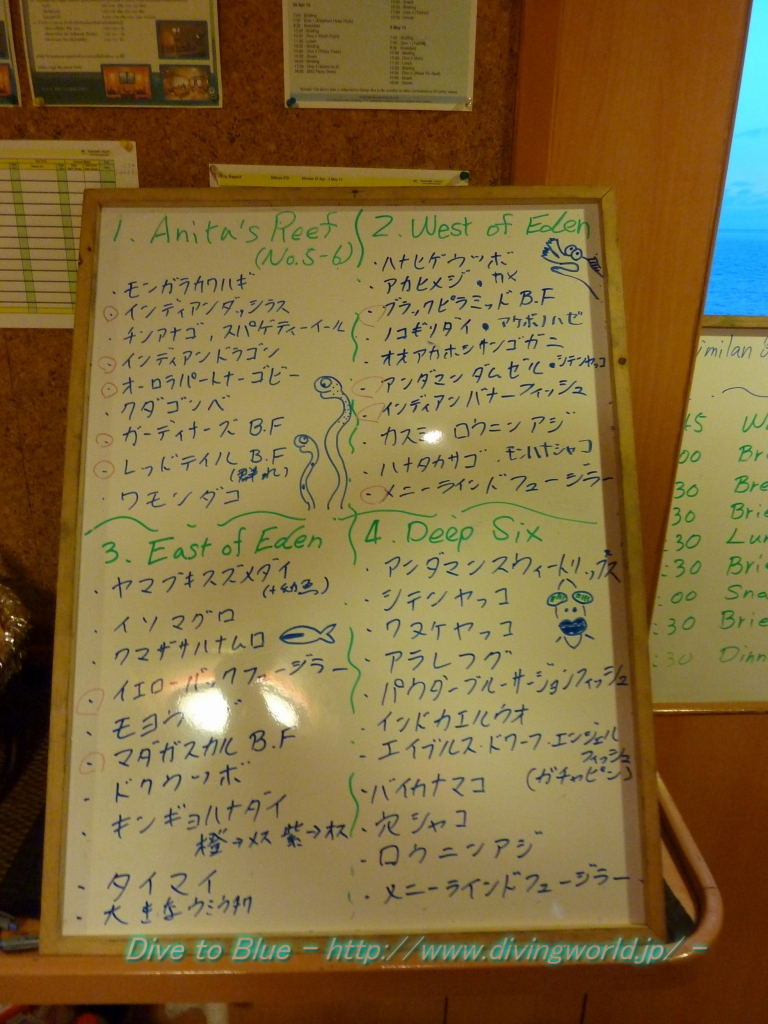 1. Anita's Reef
(No.5-6)
・モンガラカワハギ
・インディアンダッシラス
・チンアナゴ, スパゲティーイール
・インディアンドラゴン
・オーロラパートナーゴビー
・クダゴンベ
・ガーディナーズ B.F
・レッドテイル B.F
(群れ)
・ワモンダコ
2. West of Eden
・ハナヒゲウツボ
・アカヒメジ ・カメ
・ブラックピラミッド B.F
・ノコギリダイ ・アケボノハゼ
・オオアカホシサンゴガニ
・アンダマンダムゼル・シテンヤッコ
・インディアンバナーフィッシュ
・カスミ ロウニンアジ
・ハナタカサゴ ・モンハナシャコ
・メニーラインドフュージラー
3. East of Eden
・ヤマブキスズメダイ
(+幼魚)
・イソマグロ
・クマザサハナムロ
・イエローバックフュージラー
・モヨウ
・マダガスカル B.F
・ドクウツボ
・キンギョハナダイ
橙→メス 紫→オス
・タイマイ
・大きなウミウチワ
4. Deep Six
・アンダマンスウィートリップス
・シテンヤッコ
・ワヌケヤッコ
・アラレフグ
・パウダーブルーサージョンフィッシュ
・インドカエルウオ
・エイブルズ・ドワーフ・エンジェル
フィッシュ
(ガチャピン)
・バイカナマコ
・穴シャコ
・ロウニンアジ
・メニーラインドフュージラー
45
00 Br
30 Bre
30 Brie
30 Lun
:30 Brie
:00 Sna
:30 Brie
:30 Dinn
Dive to Blue - http://www.divingworld.jp/ -